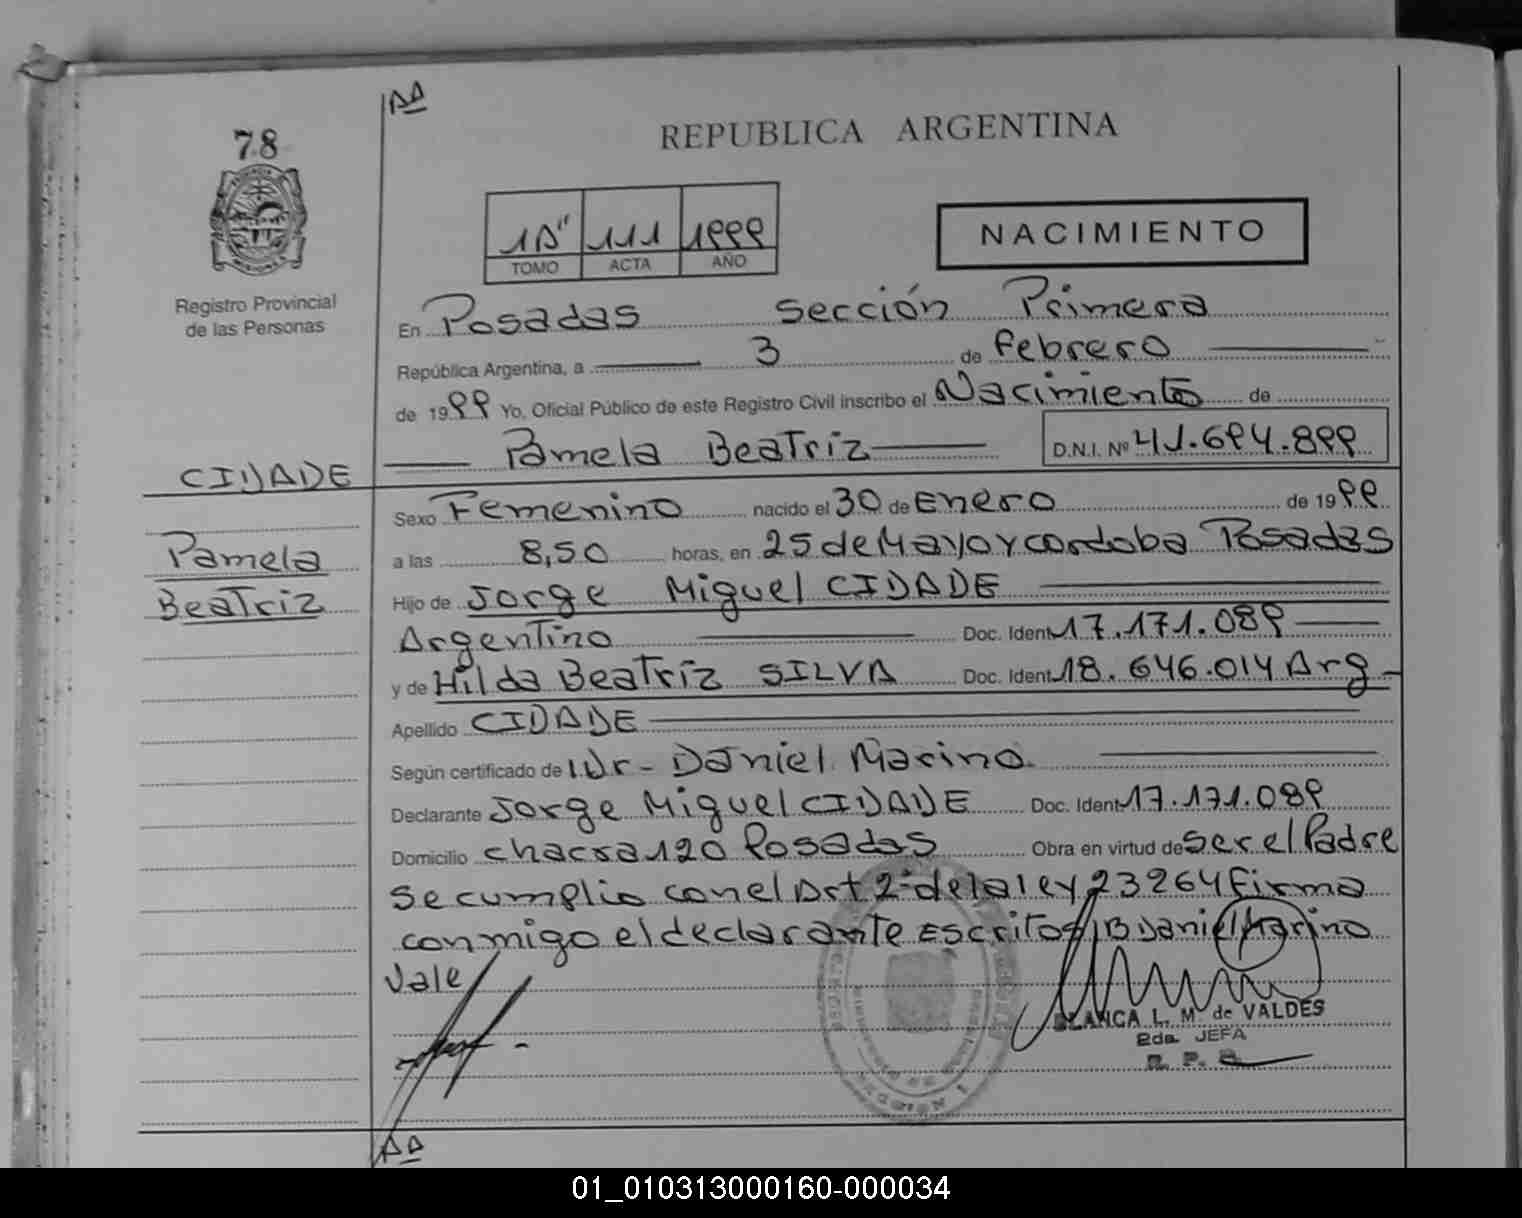 AA
78
REPUBLICA ARGENTINA
1A" 111 1999
TOMO ACTA AÑO
NACIMIENTO
Registro Provincial
de las Personas
En Posadas Sección Primera
República Argentina, a 3 de febrero
de 1999 Yo, Oficial Público de este Registro Civil inscribo el Nacimiento de
Pamela Beatriz D.N.I. Nº 41.694.899
CIDADE
Sexo Femenino nacido el 30 de Enero de 1999
a las 8,50 horas, en 25 de Mayo y cordoba Posadas
Pamela
Beatriz
Hijo de Jorge Miguel CIDADE
Argentino Doc. Ident 17.171.089
y de Hilda Beatriz SILVA Doc. Ident 18.646.014 Arg-
Apellido CIDADE
Según certificado de Dr- Daniel Marino
Declarante Jorge Miguel CIDADE Doc. Ident 17.171.089
Domicilio chacra 120 Posadas Obra en virtud de ser el Padre
se cumplio con el Art 2º de la ley 23264 firma
conmigo el declarante Escritos Daniel Marino
Vale
BLANCA L. M de VALDES
2da. JEFA
R. P.
AA
01_010313000160-000034